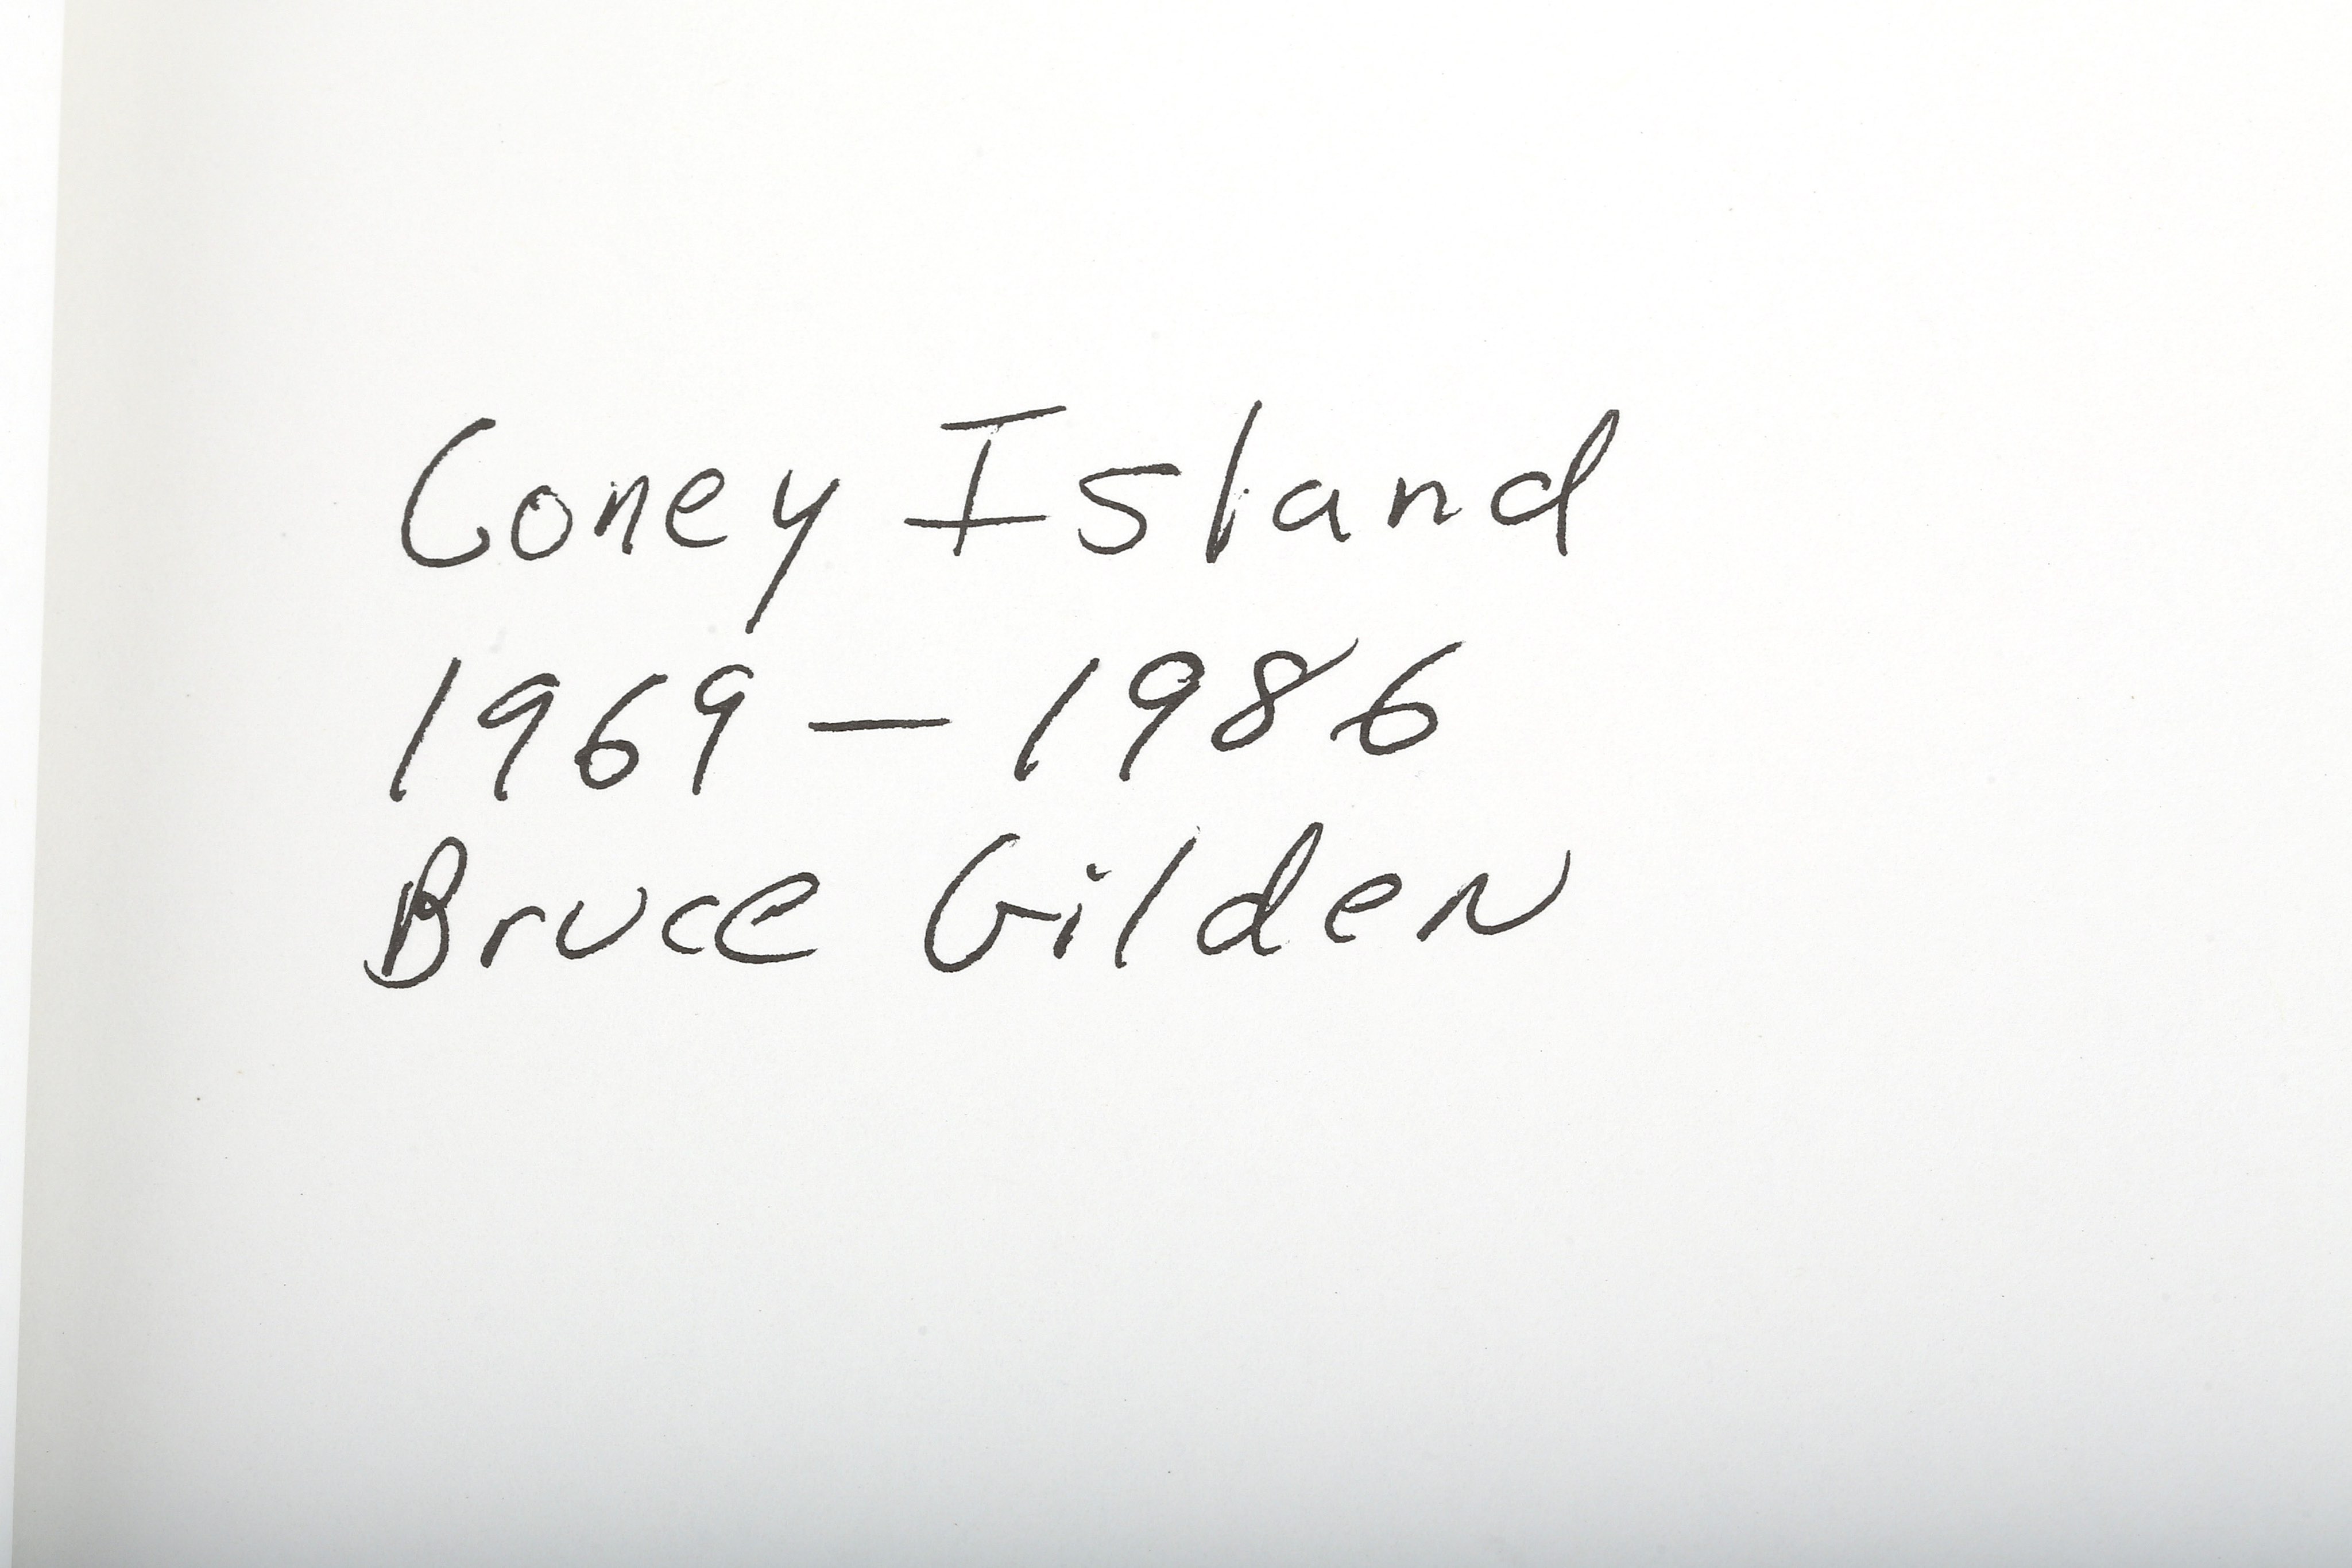 Coney Island
1969 – 1986
Bruce Gilden